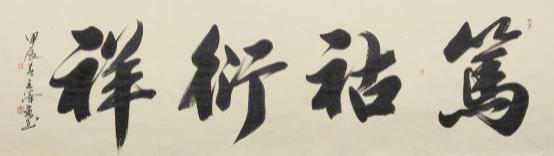 篤祜衍祥
甲辰